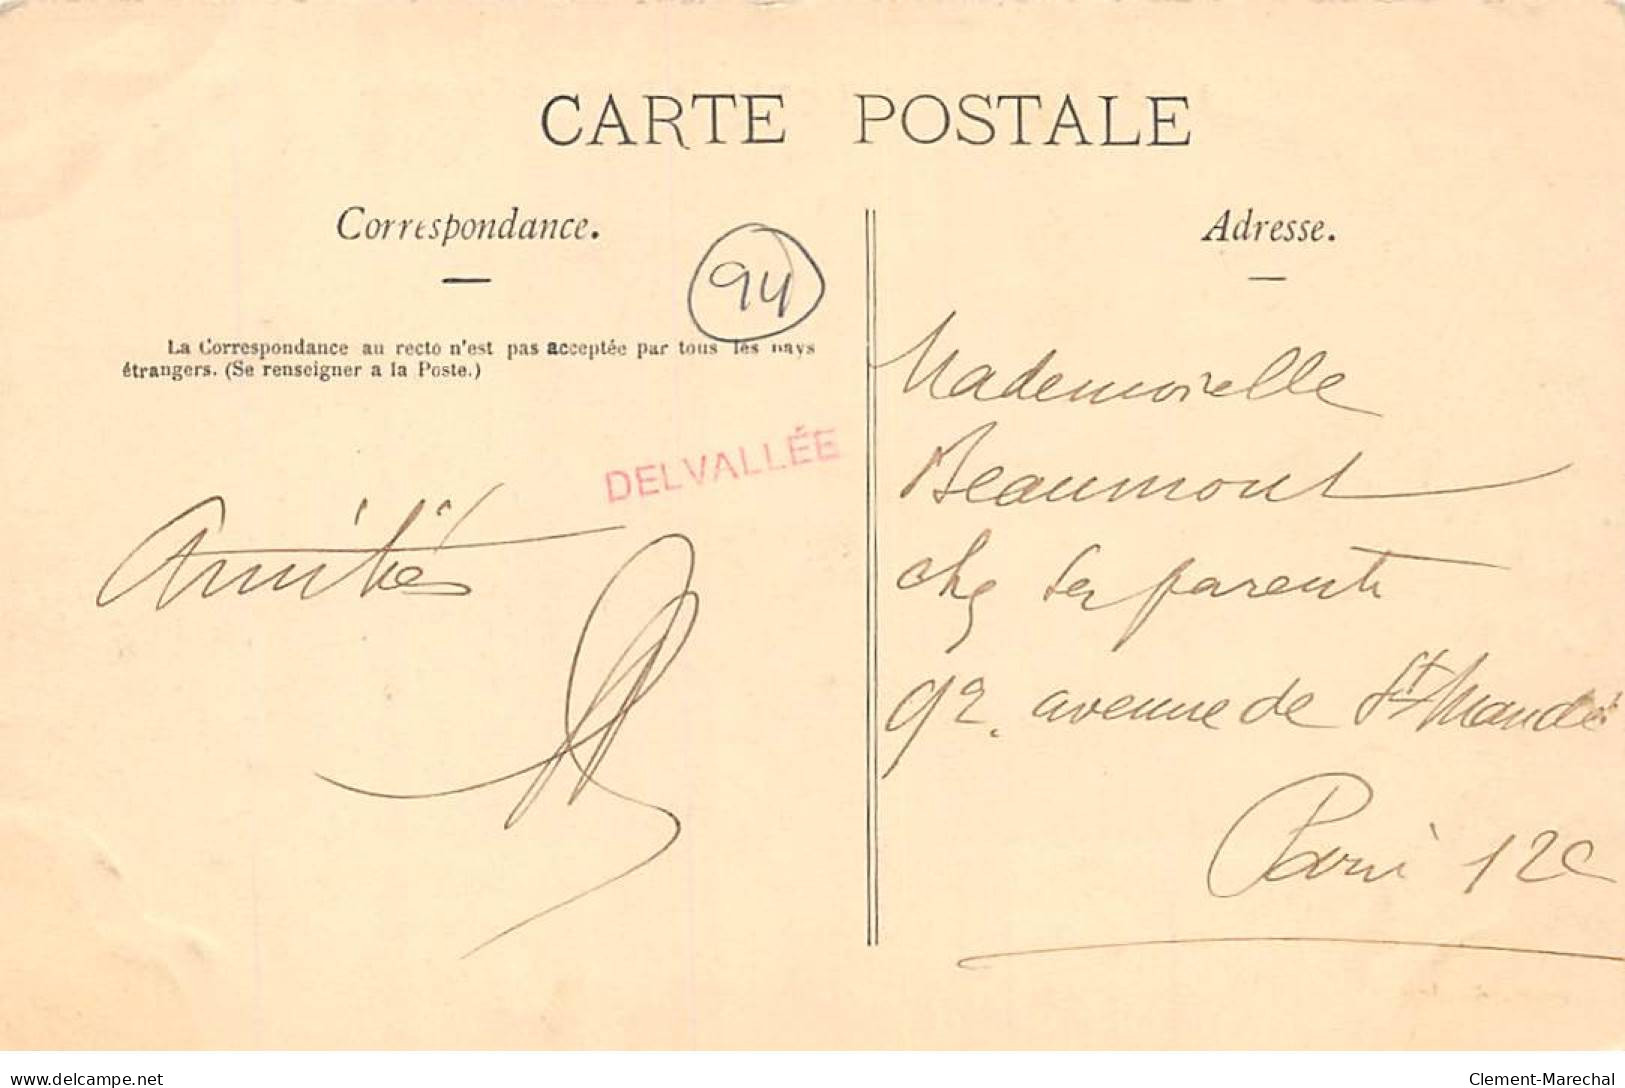 CARTE POSTALE
Correspondance.
94
La Correspondance au recto n'est pas acceptée par tous les pays
étrangers. (Se renseigner a la Poste.)
DELVALLÉE
Amitiés
Adresse.
Mademoiselle
Beaumont
chez ses parents
92. avenue de St Mandé
Paris 12e
delcampe.net
Clement-Marechal